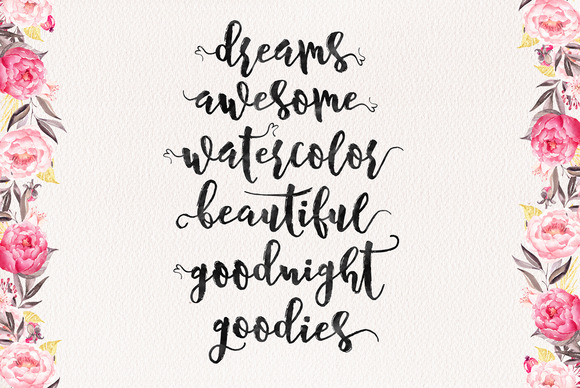 dreams
awesome
watercolor
beautiful
goodnight
goodies